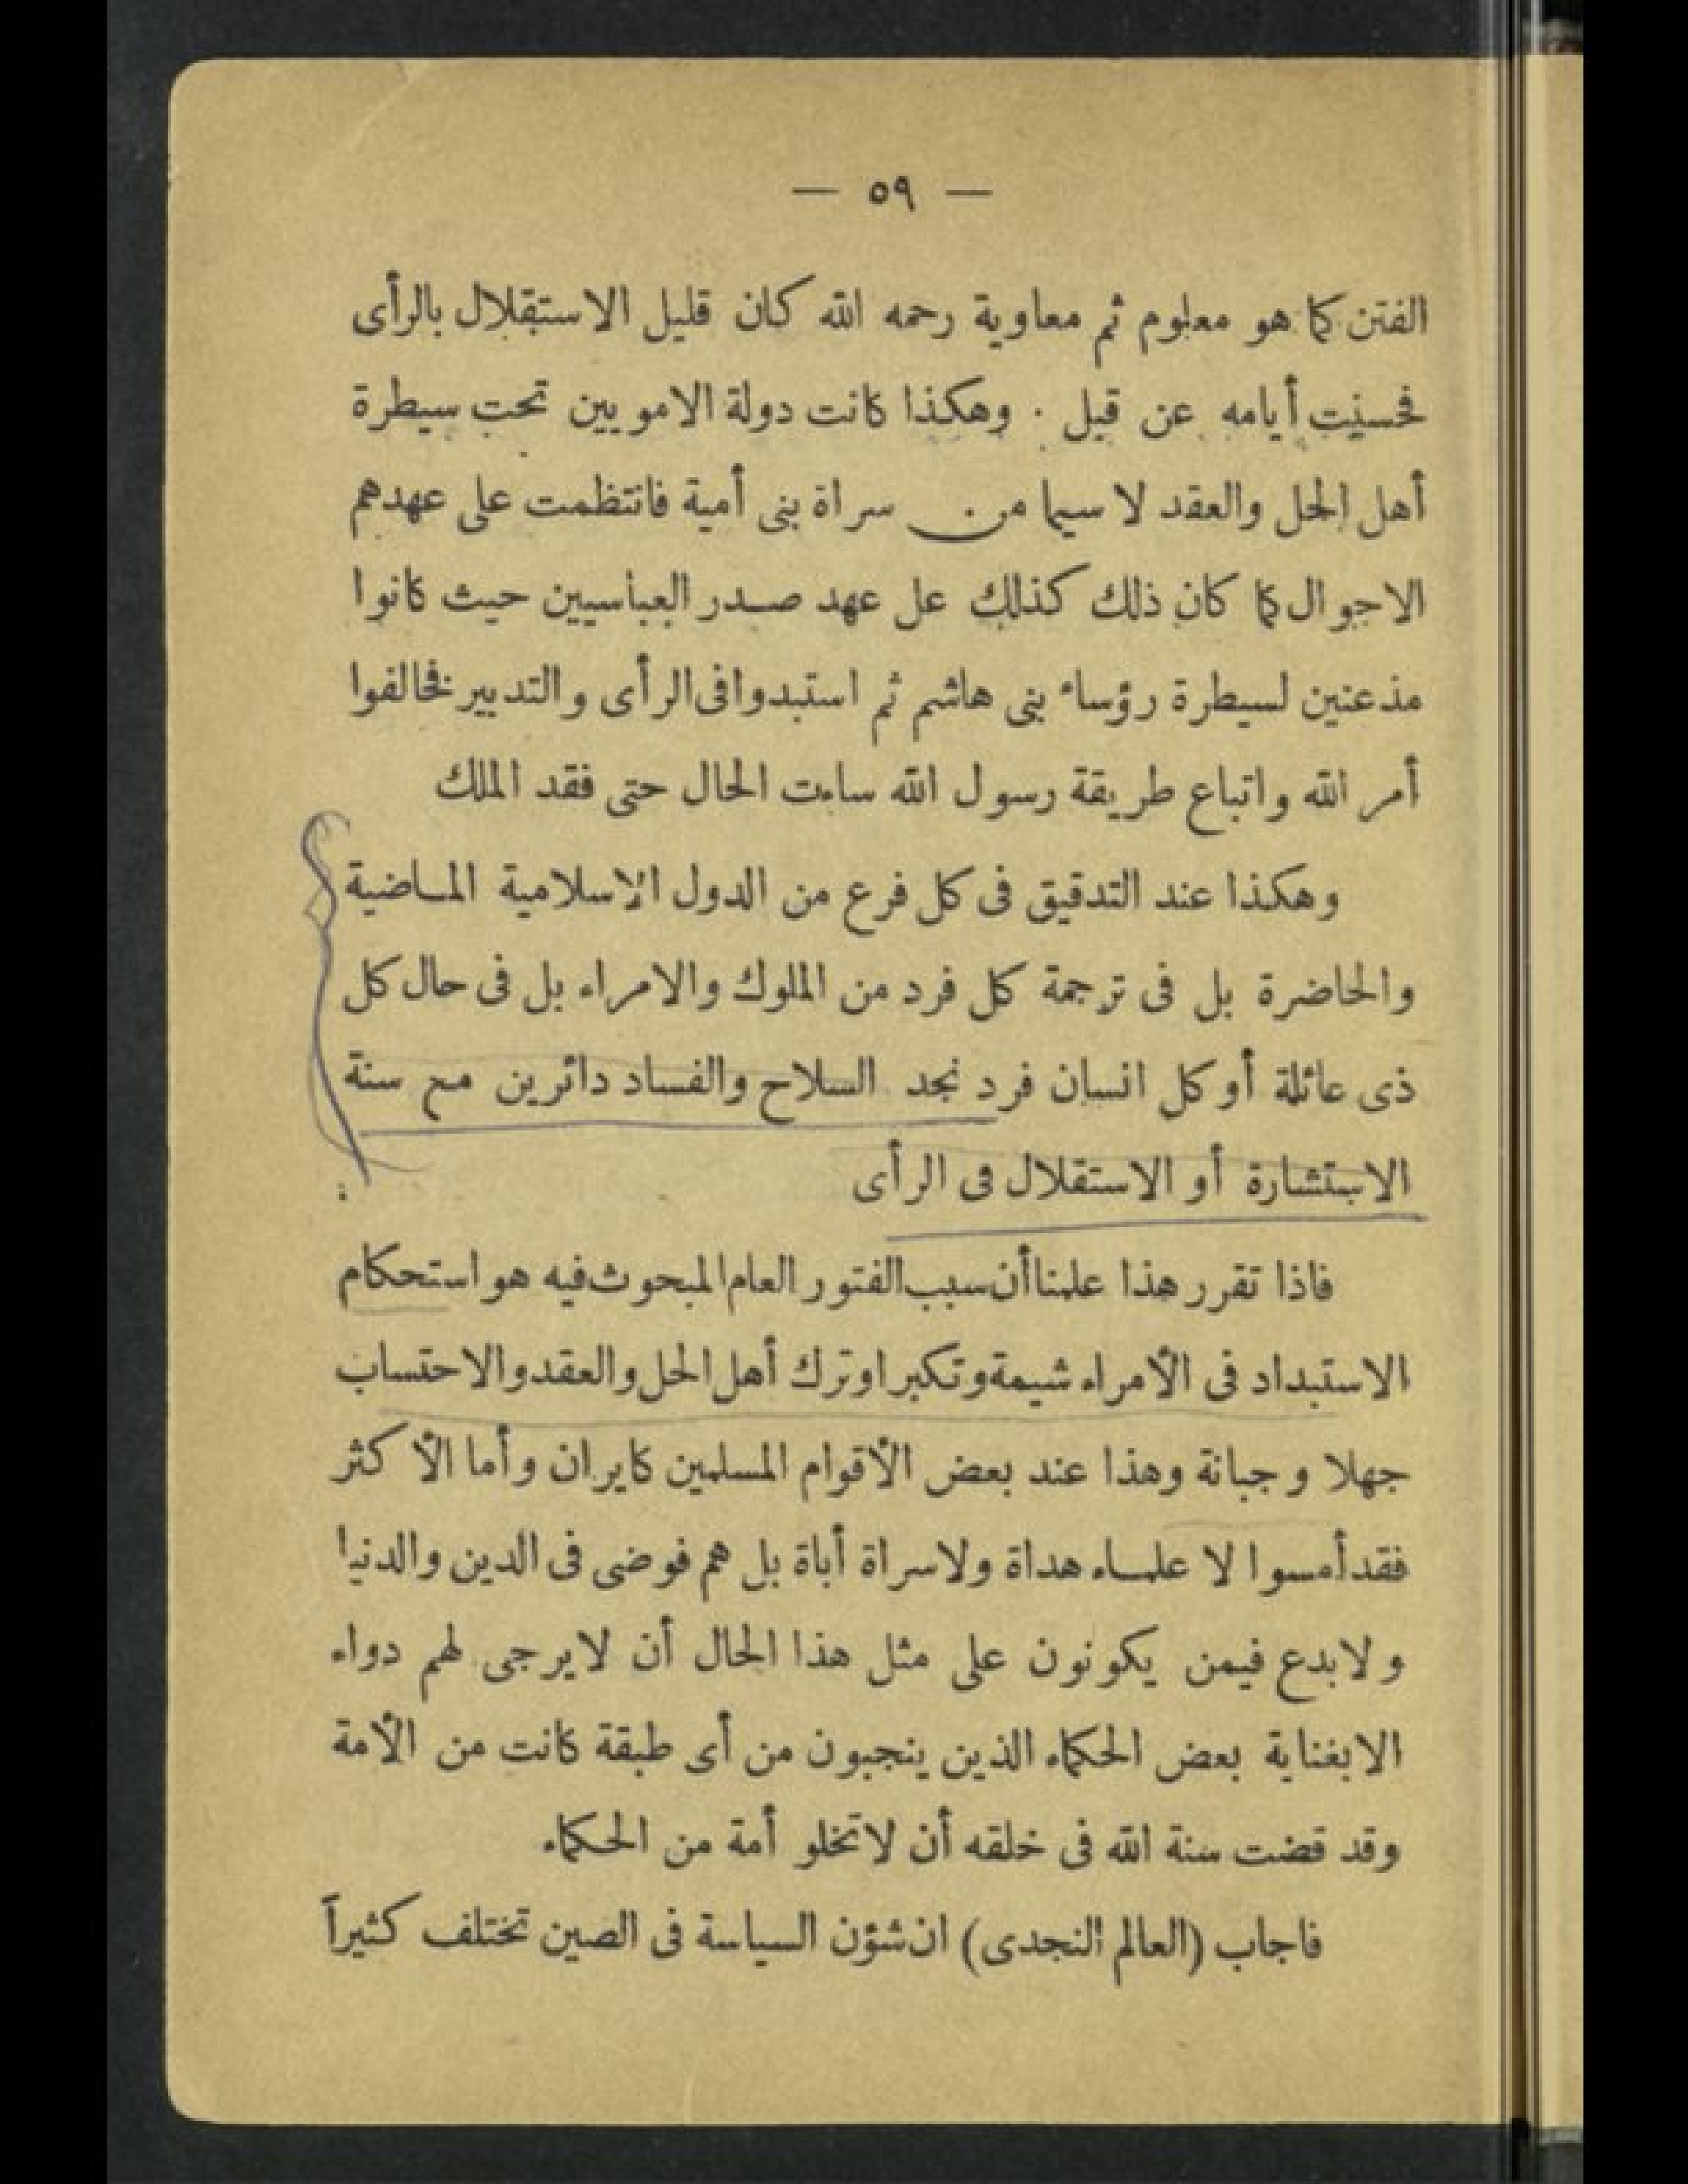 — ٥٩ —
الفتن كما هو معلوم ثم معاوية رحمه الله كان قليل الاستقلال بالرأى
فحسنت أيامه عن قبل . وهكذا كانت دولة الامويين تحت سيطرة
أهل الحل والعقد لا سيما من سراة بنى أمية فانتظمت على عهدهم
الاحوال كما كان ذلك كذلك على عهد صدر العباسيين حيث كانوا
مذعنين لسيطرة رؤساء بنى هاشم ثم استبدوا فى الرأى والتدبير فخالفوا
أمر الله واتباع طريقة رسول الله ساءت الحال حتى فقد الملك
وهكذا عند التدقيق فى كل فرع من الدول الاسلامية الماضية
والحاضرة بل فى ترجمة كل فرد من الملوك والامراء بل فى حال كل
ذى عائلة أو كل انسان فرد نجد السلاح والفساد دائرين مع سنة
الاستشارة أو الاستقلال فى الرأى
فاذا تقرر هذا علمنا أن سبب الفتور العام المبحوث فيه هو استحكام
الاستبداد فى الأمراء شيمة وتكبرا وترك أهل الحل والعقد والاحتساب
جهلا وجبانة وهذا عند بعض الأقوام المسلمين كايران وأما الأكثر
فقد أمسوا لا علماء هداة ولا سراة أباة بل هم فوضى فى الدين والدنيا
ولا بدع فيمن يكونون على مثل هذا الحال أن لا يرجى لهم دواء
الابغناية بعض الحكماء الذين ينجبون من أى طبقة كانت من الأمة
وقد قضت سنة الله فى خلقه أن لا تخلو أمة من الحكماء
فاجاب (العالم النجدى) ان شؤن السياسة فى الصين تختلف كثيراً